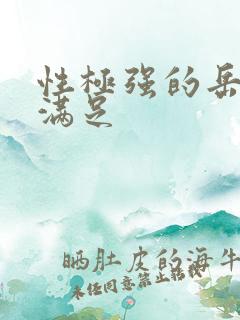 性極强的岳
满足
晒肚皮的海牛
未经同意禁止转载